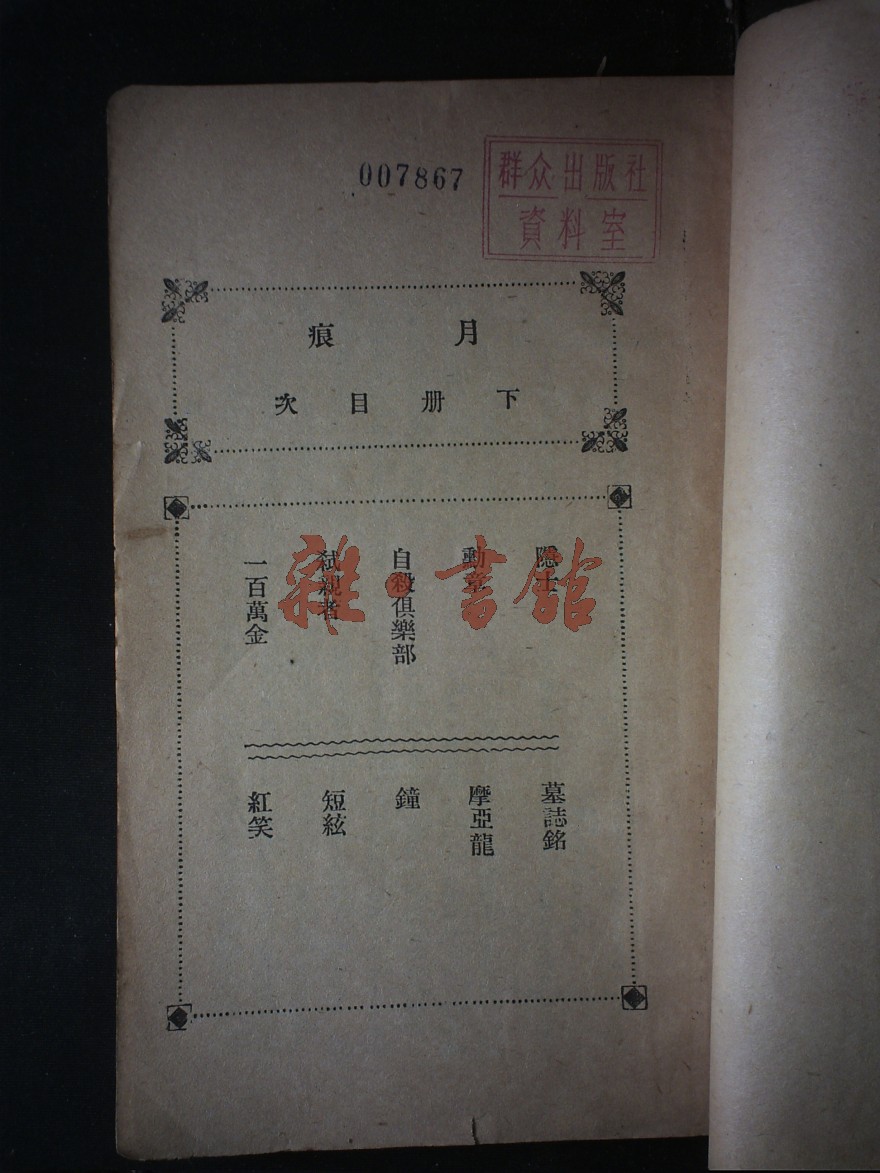 007867
群众出版社
資料室
月痕
下册目次
隱士
勳章
自殺俱樂部
弑親者
一百萬金
墓誌銘
摩亞龍
鐘
短絃
紅笑
雜·書館